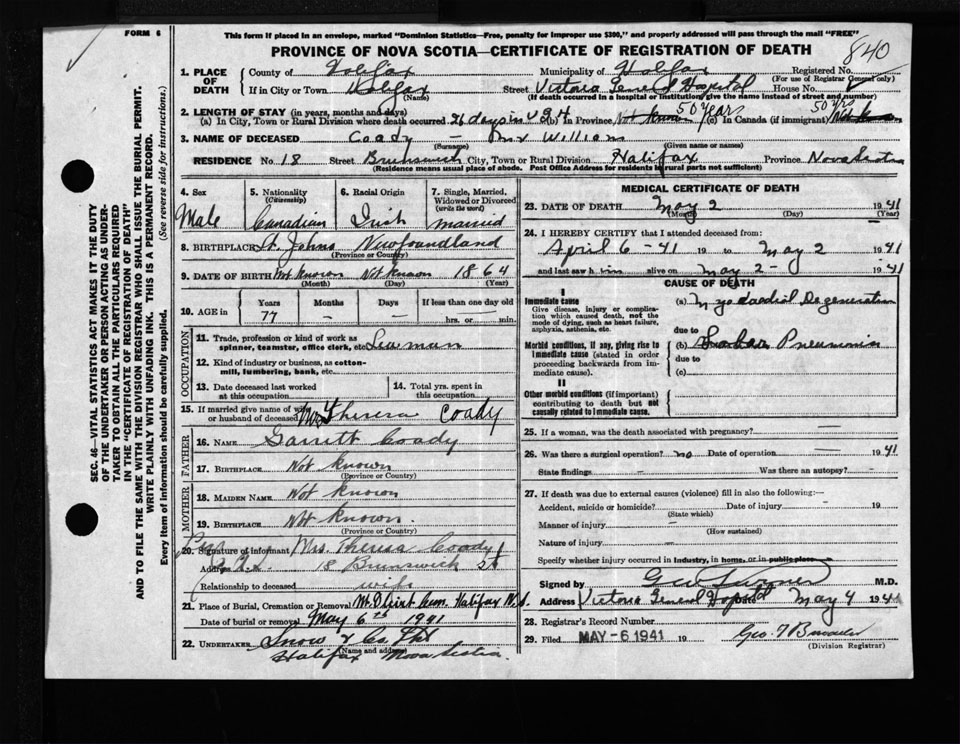 FORM 6
This form if placed in an envelope, marked "Dominion Statistics—Free, penalty for improper use $300," and properly addressed will pass through the mail "FREE"
PROVINCE OF NOVA SCOTIA—CERTIFICATE OF REGISTRATION OF DEATH
840
1. PLACE OF DEATH
County of Halifax Municipality of Halifax Registered No.
(For use of Registrar General only)
If in City or Town Halifax Street Victoria General Hospital House No.
(Name) (If death occurred in a hospital or institution, give the name instead of street and number)
2. LENGTH OF STAY (in years, months and days)
(a) In City, Town or Rural Division where death occurred 26 days in V.G.H. (b) In Province Not known 50 years (c) In Canada (if immigrant) 50 yrs Not known
3. NAME OF DECEASED Coady - Mr William
(Surname) (Given name or names)
RESIDENCE No. 18 Street Brunswick City, Town or Rural Division Halifax Province Nova Scotia
(Residence means usual place of abode. Post Office Address for residents in rural parts not sufficient)
4. Sex Male
5. Nationality (Citizenship) Canadian
6. Racial Origin Irish
7. Single, Married, Widowed or Divorced (write the word) married
8. BIRTHPLACE St. Johns Newfoundland
(Province or Country)
9. DATE OF BIRTH Not known Not known 1864
(Month) (Day) (Year)
10. AGE in Years Months Days If less than one day old
77 – – hrs. or min.
OCCUPATION
11. Trade, profession or kind of work as spinner, teamster, office clerk, etc. Seaman
12. Kind of industry or business, as cotton-mill, lumbering, bank, etc.
13. Date deceased last worked at this occupation
14. Total yrs. spent in this occupation
15. If married give name of wife or husband of deceased Mrs Theresa Coady
FATHER
16. NAME Garrett Coady
17. BIRTHPLACE Not known
(Province or Country)
MOTHER
18. MAIDEN NAME Not known
19. BIRTHPLACE Not known.
(Province or Country)
20. Signature of informant Mrs. Theresa Coady
Address 18 Brunswick St
Relationship to deceased wife
21. Place of Burial, Cremation or Removal Mt. Olivet Cem. Halifax N.S.
Date of burial or removal May 6th 1941
22. UNDERTAKER Snow & Co. Ltd
(Name and address)
Halifax Nova Scotia.
MEDICAL CERTIFICATE OF DEATH
23. DATE OF DEATH May 2 1941
(Month) (Day) (Year)
24. I HEREBY CERTIFY that I attended deceased from:
April 6-41 19 to May 2 1941
and last saw him alive on May 2 - 1941
CAUSE OF DEATH
I
Immediate cause
Give disease, injury or complication which caused death, not the mode of dying, such as heart failure, asphyxia, asthenia, etc.
(a) Myocardial Degeneration
due to
Morbid conditions, if any, giving rise to immediate cause (stated in order proceeding backwards from immediate cause).
(b) Lobar Pneumonia
due to
(c)
II
Other morbid conditions (if important) contributing to death but not causally related to immediate cause.
25. If a woman, was the death associated with pregnancy?
26. Was there a surgical operation? no Date of operation – 1941
State findings – Was there an autopsy? –
27. If death was due to external causes (violence) fill in also the following:–
Accident, suicide or homicide? Date of injury 19
(State which)
Manner of injury –
(How sustained)
Nature of injury –
Specify whether injury occurred in industry, in home, or in public place
Signed by M.D.
Address Victoria General Hospital Date May 4 1941
28. Registrar's Record Number
29. Filed MAY -6 1941 19
(Division Registrar)
SEC. 46—VITAL STATISTICS ACT MAKES IT THE DUTY
OF THE UNDERTAKER OR PERSON ACTING AS UNDER-
TAKER TO OBTAIN ALL THE PARTICULARS REQUIRED
IN THE "CERTIFICATE OF REGISTRATION OF DEATH"
AND TO FILE THE SAME WITH THE DIVISION REGISTRAR WHO SHALL ISSUE THE BURIAL PERMIT.
WRITE PLAINLY WITH UNFADING INK. THIS IS A PERMANENT RECORD.
Every item of information should be carefully supplied. (See reverse side for instructions.)